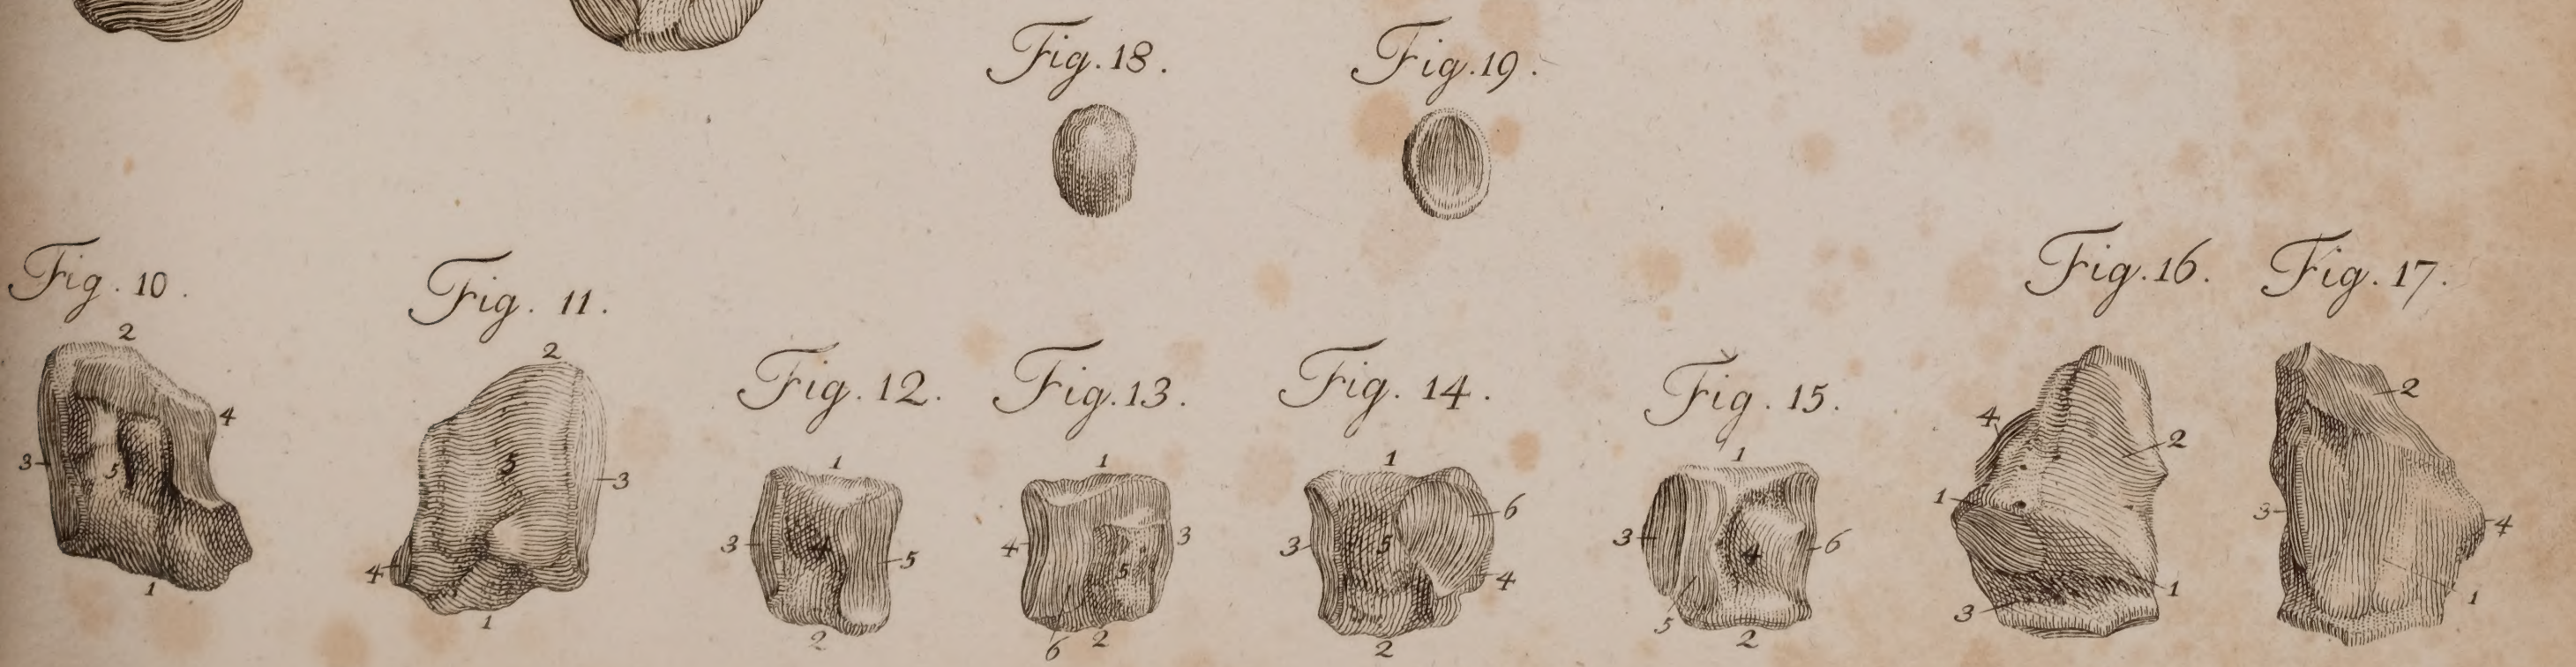 Fig. 18.
Fig. 19.
Fig. 10.
2
4
3
5
1
Fig. 11.
2
5
3
4
1
Fig. 12.
1
3
4
5
2
Fig. 13.
1
4
3
5
6
2
Fig. 14.
1
6
3
5
4
2
Fig. 15.
1
3
4
6
5
2
Fig. 16.
4
2
1
1
3
Fig. 17.
2
3
4
1